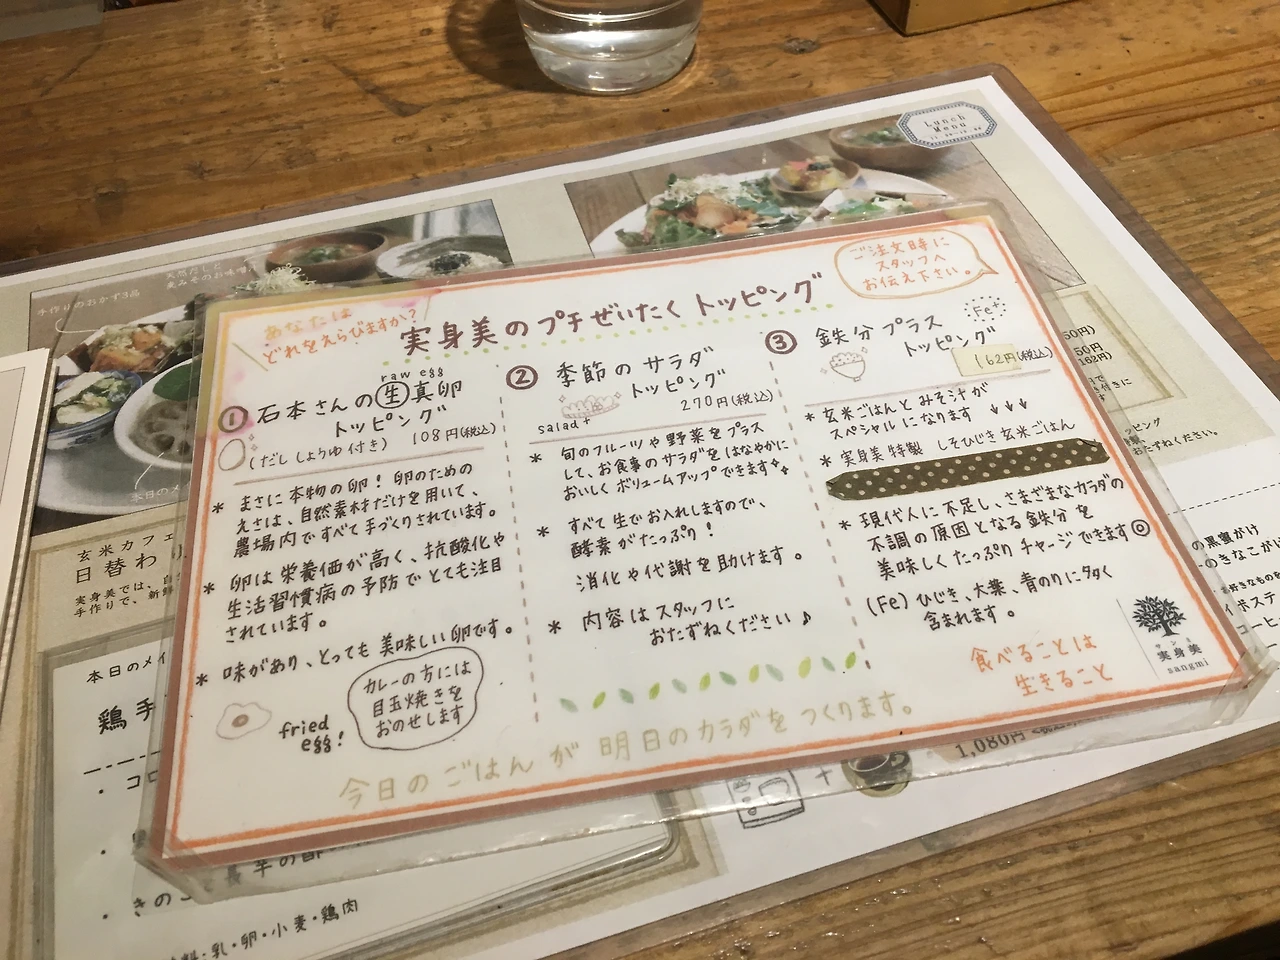 Lunch
Menu
手作りのおかず3品
天然だしと
麦みそのお味噌汁
あなたは
どれをえらびますか?
実身美のプチぜいたくトッピング
ご注文時に
スタッフへ
お伝え下さい。
① 石本さんの生真卵
raw egg
トッピング
(だししょうゆ付き) 108円(税込)
* まさに本物の卵!卵のための
えさは、自然素材だけを用いて、
農場内ですべて手づくりされています。
* 卵は栄養価が高く、抗酸化や
生活習慣病の予防でとても注目
されています。
* 味があり、とっても美味しい卵です。
fried
egg!
カレーの方には
目玉焼きを
おのせします
② 季節のサラダ
トッピング
salad+
270円(税込)
* 旬のフルーツや野菜をプラス
して、お食事のサラダをはなやかに
おいしくボリュームアップできます
* すべて生でお入れしますので、
酵素がたっぷり!
消化や代謝を助けます。
* 内容はスタッフに
おたずねください♪
③ 鉄分プラス
トッピング
Fe
162円(税込)
* 玄米ごはんとみそ汁が
スペシャルになります ↓↓↓
* 実身美特製 しそひじき玄米ごはん
* 現代人に不足し、さまざまなカラダの
不調の原因となる鉄分を
美味しくたっぷりチャージできます◎
(Fe)ひじき、大葉、青のりに多く
含まれます。
食べることは
生きること
実身美
sangmi
今日のごはんが明日のカラダをつくります。
玄米カフェ
日替わ
実身美では、
手作りで、新鮮
本日のメイ
鶏手
・コロ
・きのこ
乳・卵・小麦・鶏肉
50円)
50円
162円)
ッピング
おたずねください。
の黒蜜がけ
のきなこがけ
1,080円
+